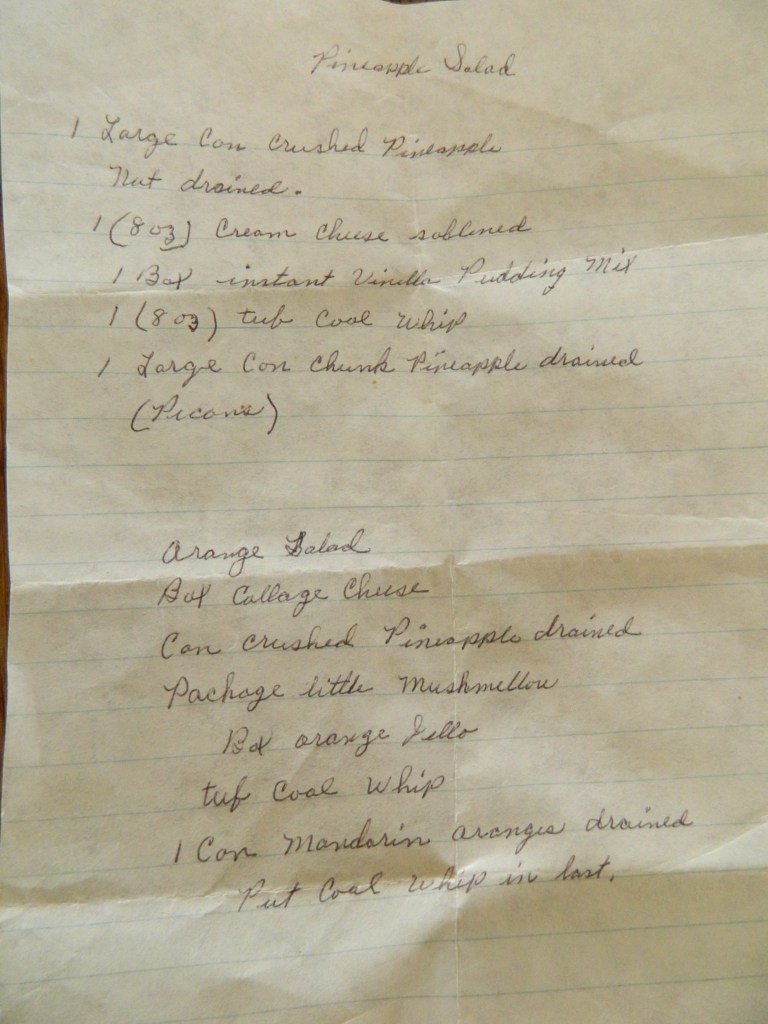 Pineapple Salad
1 Large Can Crushed Pineapple
Not drained.
1 (8 oz) Cream Cheese soblened
1 Box instant Vinilla Pudding Mix
1 (8 oz) tub Cool Whip
1 Large Can Chunk Pineapple drained
(Pecans)
Orange Salad
Box Collage Cheese
Can Crushed Pineapple drained
Package little Mushmellow
Box orange Jello
tub Cool Whip
1 Can Mandarin oranges drained
Put Cool Whip in last.